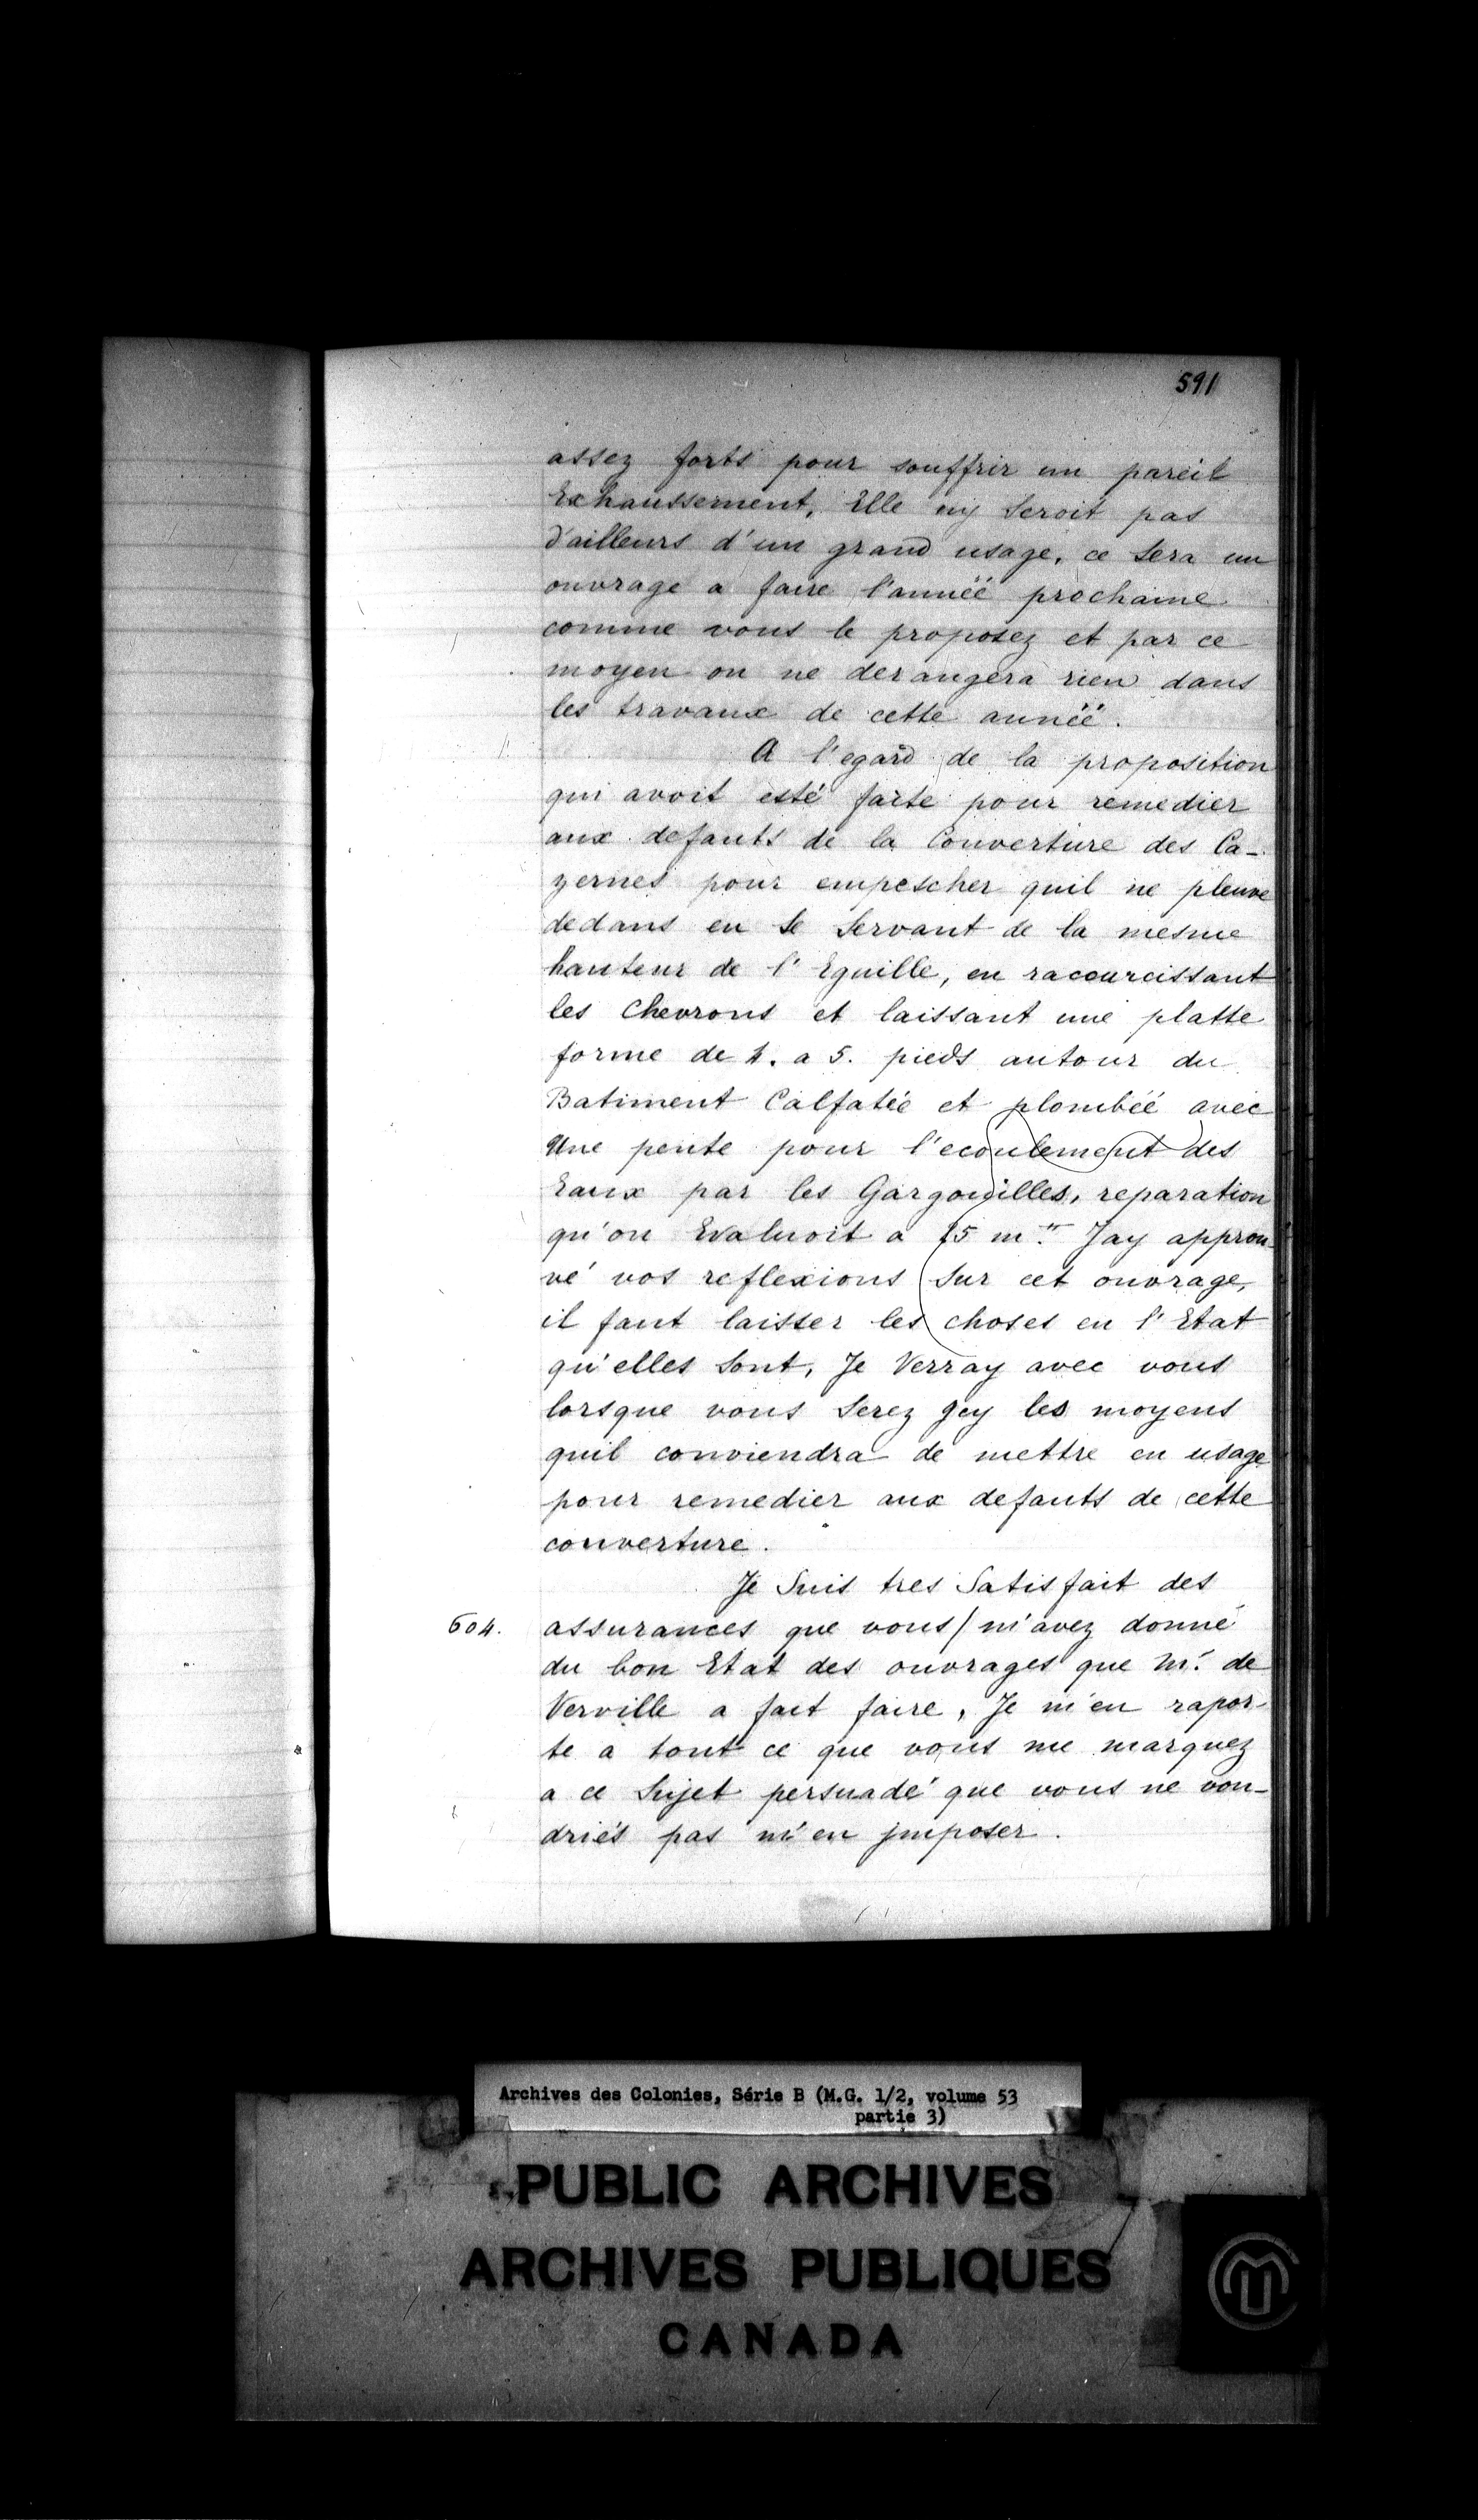 591
assez forts pour souffrir un pareil
Exhaussement, Elle ny Seroit pas
d'ailleurs d'un grand usage, ce Sera un
ouvrage a faire l'année prochaine
comme vous le proposez et par ce
moyen on ne derangera rien dans
les travaux de cette année.
A l'egard de la proposition
qui avoit esté faite pour remedier
aux defauts de la Couverture des Ca-
zernes pour empescher quil ne pleuve
dedans en Se Servant de la mesme
hauteur de l'Eguille, en racourcissant
les Chevrons et laissant une platte
forme de 4. a 5. pieds autour du
Batiment Calfatée et plombéé avec
Une pente pour l'ecoulement des
Eaux par les Gargouilles, reparation
qu'on Evaluoit a 15 m.tt Jay approu-
vé vos reflexions Sur cet ouvrage,
il faut laisser les choses en l'Etat
qu'elles Sont, Je Verray avec vous
lorsque vous Serez Jcy les moyens
quil conviendra de mettre en usage
pour remedier aux defauts de cette
couverture.
Je Suis tres Satisfait des
604. assurances que vous/ m'avez donné
du bon Etat des ouvrages que Mr. de
Verville a fait faire, Je m'en rapor-
te a tout ce que vous me marquez
a ce Sujet persuadé que vous ne vou-
driés pas m'en jmposer.
Archives des Colonies, Série B (M.G. 1/2, volume 53
partie 3)
PUBLIC ARCHIVES
ARCHIVES PUBLIQUES
CANADA